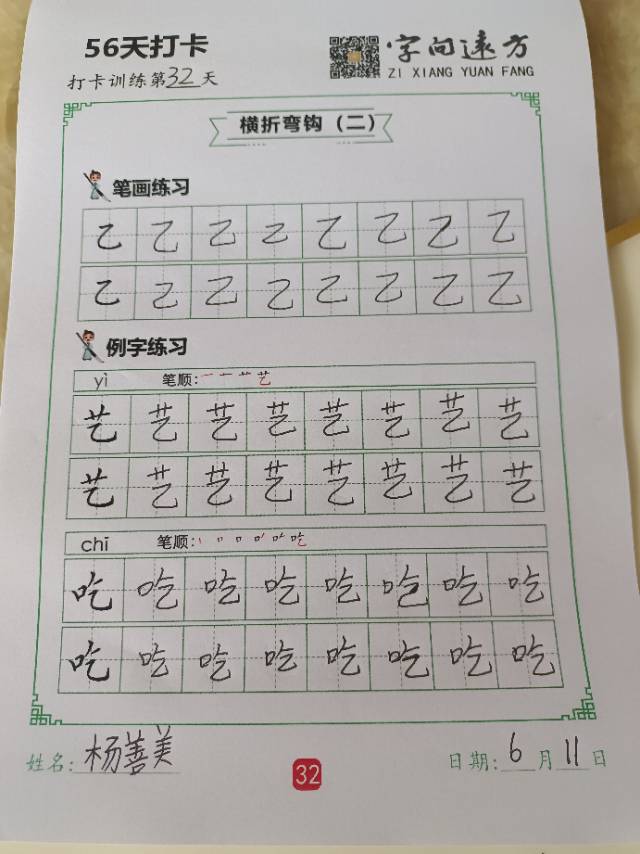 56天打卡
字向遠方
打卡训练第32天
ZI XIANG YUAN FANG
横折弯钩（二）
笔画练习
乙 乙 乙 乙 乙 乙 乙 乙
乙 乙 乙 乙 乙 乙 乙 乙
例字练习
yì 笔顺: 一 十 艹 艺
艺 艺 艺 艺 艺 艺 艺 艺
艺 艺 艺 艺 艺 艺 艺 艺
chī 笔顺:
吃 吃 吃 吃 吃 吃 吃 吃
吃 吃 吃 吃 吃 吃 吃 吃
姓名: 杨善美
32
日期: 6月11日